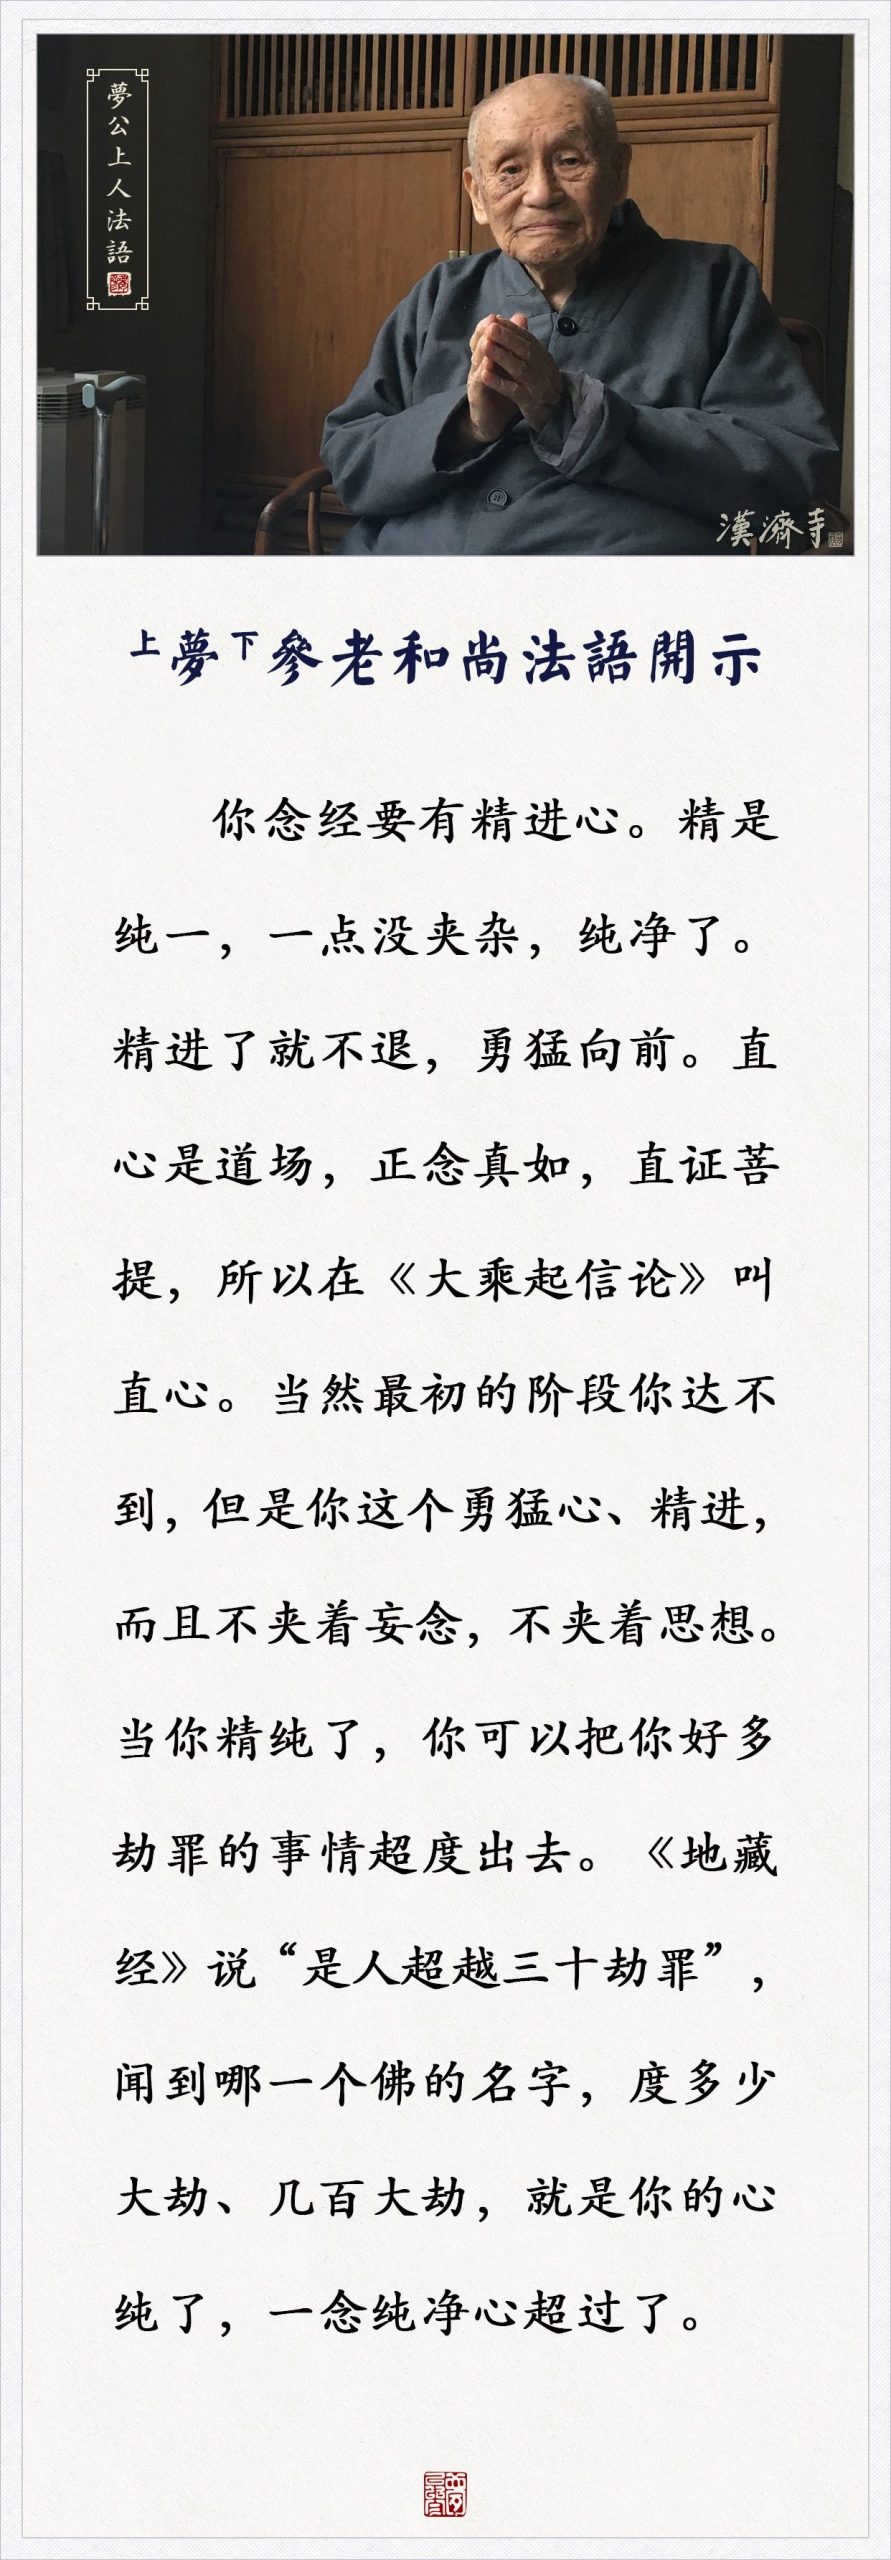 夢公上人法語
漢濟寺
上夢下參老和尚法語開示
你念经要有精进心。精是
纯一，一点没夹杂，纯净了。
精进了就不退，勇猛向前。直
心是道场，正念真如，直证菩
提，所以在《大乘起信论》叫
直心。当然最初的阶段你达不
到，但是你这个勇猛心、精进，
而且不夹着妄念，不夹着思想。
当你精纯了，你可以把你好多
劫罪的事情超度出去。《地藏
经》说“是人超越三十劫罪”，
闻到哪一个佛的名字，度多少
大劫、几百大劫，就是你的心
纯了，一念纯净心超过了。